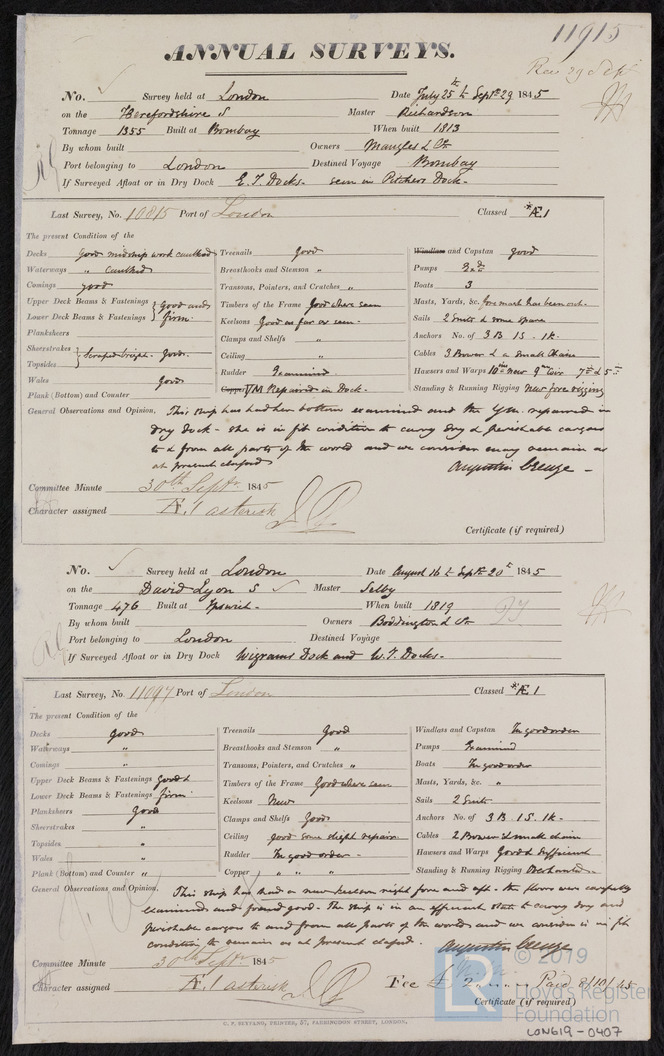 11915
ANNUAL SURVEYS.
Rec 29 Sept
No. Survey held at London Date July 25th to Septr 29 1845
on the Herefordshire S Master Richardson
Tonnage 1355 Built at Bombay When built 1813
By whom built Owners Mangles & Co
Port belonging to London Destined Voyage Bombay
If Surveyed Afloat or in Dry Dock E. I. Docks - seen in Pitchers Dock -
Last Survey, No. 10815 Port of London Classed *Æ1
The present Condition of the
Decks Good midship work caulked
Waterways " caulked
Comings good
Upper Deck Beams & Fastenings } Good and
Lower Deck Beams & Fastenings } firm
Planksheers
Sheerstrakes } Scraped bright - Good.
Topsides
Wales Good
Plank (Bottom) and Counter
Treenails Good
Breasthooks and Stemson "
Transoms, Pointers, and Crutches "
Timbers of the Frame Good where seen
Keelsons Good as far as seen -
Clamps and Shelfs "
Ceiling "
Rudder Examined
Copper YM Repaired in Dock -
Windlass and Capstan Good
Pumps
Boats 3
Masts, Yards, &c. fore mast has been out -
Sails 2 Suits & some spare
Anchors No. of 3 B. 1 S. 1 k -
Cables 3 Bower & a small Chain
Hawsers and Warps 10 in new 9 in 7 in & 5 in
Standing & Running Rigging New fore rigging
General Observations and Opinion. This ship has had her bottom examined and the YM repaired in
dry dock - She is in fit condition to carry dry & perishable cargoes
to & from all parts of the world and we consider may remain as
at present classed
Augustin Creuze -
Committee Minute 30th Septr 1845
Character assigned Æ.1 asterisk
Certificate (if required)
No. Survey held at London Date August 16 to Septr 20th 1845
on the David Lyon S Master Selby
Tonnage 476 Built at Ipswich - When built 1819
By whom built Owners Boddington & Co
Port belonging to London Destined Voyage
If Surveyed Afloat or in Dry Dock Wigrams Dock and W. I. Docks -
Last Survey, No. 11097 Port of London Classed *Æ1
The present Condition of the
Decks good
Waterways "
Comings "
Upper Deck Beams & Fastenings Good &
Lower Deck Beams & Fastenings firm
Planksheers Good
Sheerstrakes "
Topsides "
Wales "
Plank (Bottom) and Counter "
Treenails Good
Breasthooks and Stemson "
Transoms, Pointers, and Crutches "
Timbers of the Frame Good where seen
Keelsons New
Clamps and Shelfs Good
Ceiling good some slight repairs
Rudder In good order -
Copper " " "
Windlass and Capstan In good order
Pumps Examined
Boats In good order
Masts, Yards, &c. "
Sails 2 Suits
Anchors No. of 3 B. 1 S. 1 k -
Cables 2 Bower & small chain
Hawsers and Warps Good & Sufficient
Standing & Running Rigging Overhauled -
General Observations and Opinion. This ship has had a new keelson right fore and aft - the floors were carefully
examined and found good - The ship is in an efficient state to carry dry and
perishable cargoes to and from all parts of the world and we consider is in fit
condition to remain as at present classed.
Augustin Creuze
Committee Minute 30th Septr 1845
Character assigned Æ.1 asterisk
Fee £ 2 Paid 8/10/45
Certificate (if required)
C. F. SEYFANG, PRINTER, 57, FARRINGDON STREET, LONDON.
© 2019
LR
Lloyd's Register
Foundation
LON619-0407